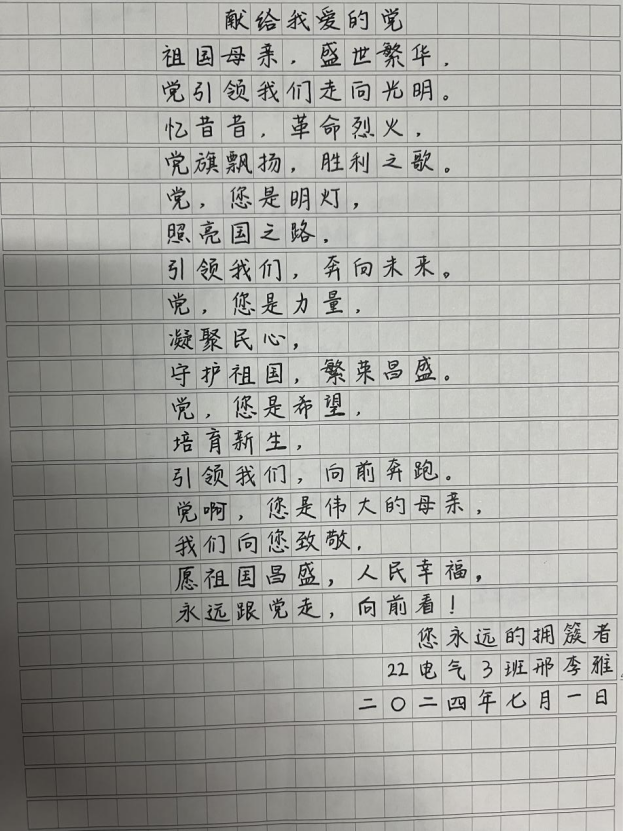 献给我爱的党
祖国母亲，盛世繁华，
党引领我们走向光明。
忆昔昔，革命烈火，
党旗飘扬，胜利之歌。
党，您是明灯，
照亮国之路，
引领我们，奔向未来。
党，您是力量，
凝聚民心，
守护祖国，繁荣昌盛。
党，您是希望，
培育新生，
引领我们，向前奔跑。
党啊，您是伟大的母亲，
我们向您致敬，
愿祖国昌盛，人民幸福，
永远跟党走，向前看！
您永远的拥簇者
22电气3班邢李雅
二〇二四年七月一日